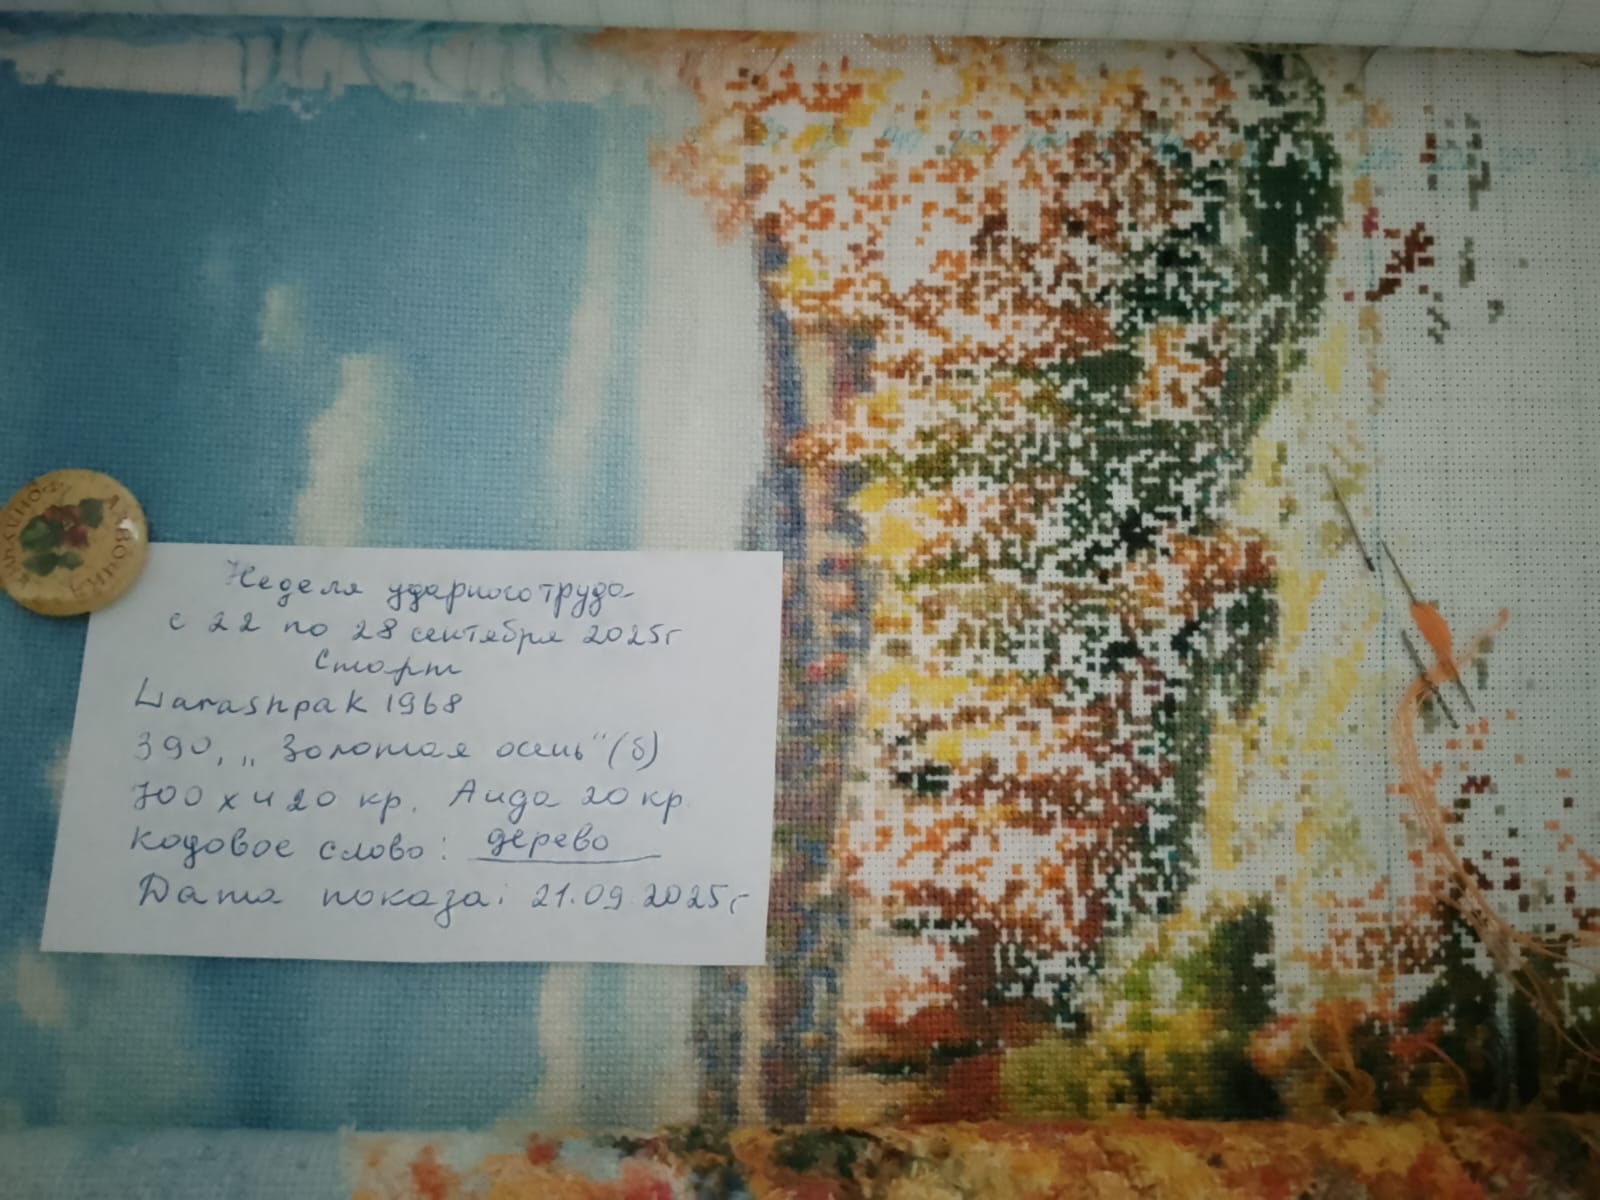 Неделя ударного труда
с 22 по 28 сентября 2025г
Старт
Larashpak 1968
390, „Золотая осень" (б)
700 х 420 кр. Аида 20 кр.
кодовое слово: дерево
Дата показа: 21.09.2025г